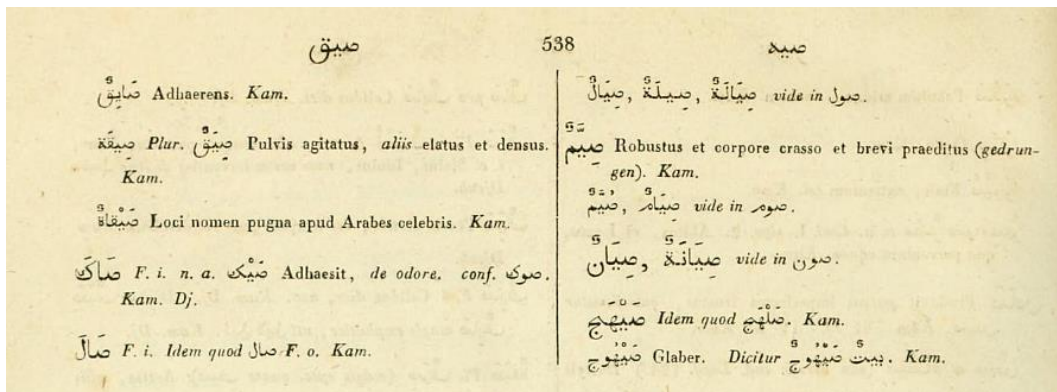 صيق 538 صيد
صَايِقٌ Adhaerens. Kam.
صِيقَة Plur. صِيَقٌ Pulvis agitatus, aliis elatus et densus.
Kam.
صَيْقَاةٌ Loci nomen pugna apud Arabes celebris. Kam.
صَاكَ F. i. n. a. صَيْكٌ Adhaesit, de odore. conf. صوك.
Kam. Dj.
صَالَ F. i. Idem quod صال F. o. Kam.
صِيَالٌ, صِيلَةٌ, صِيَالَةٌ vide in صول.
صِيَمٌّ Robustus et corpore crasso et brevi praeditus (gedrun-
gen). Kam.
صُيَّمٌ, صِيَامٌ vide in صوم.
صِيَانٌ, صِيَانَةٌ vide in صون.
صَيْهَج Idem quod صَلْهَج. Kam.
صَيْهُوجٌ Glaber. Dicitur بيت صَيْهُوجٌ. Kam.